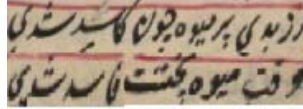 ور بدی پر میوه چون کاسد شدی
وقت میوه پختنت فاسد شدی